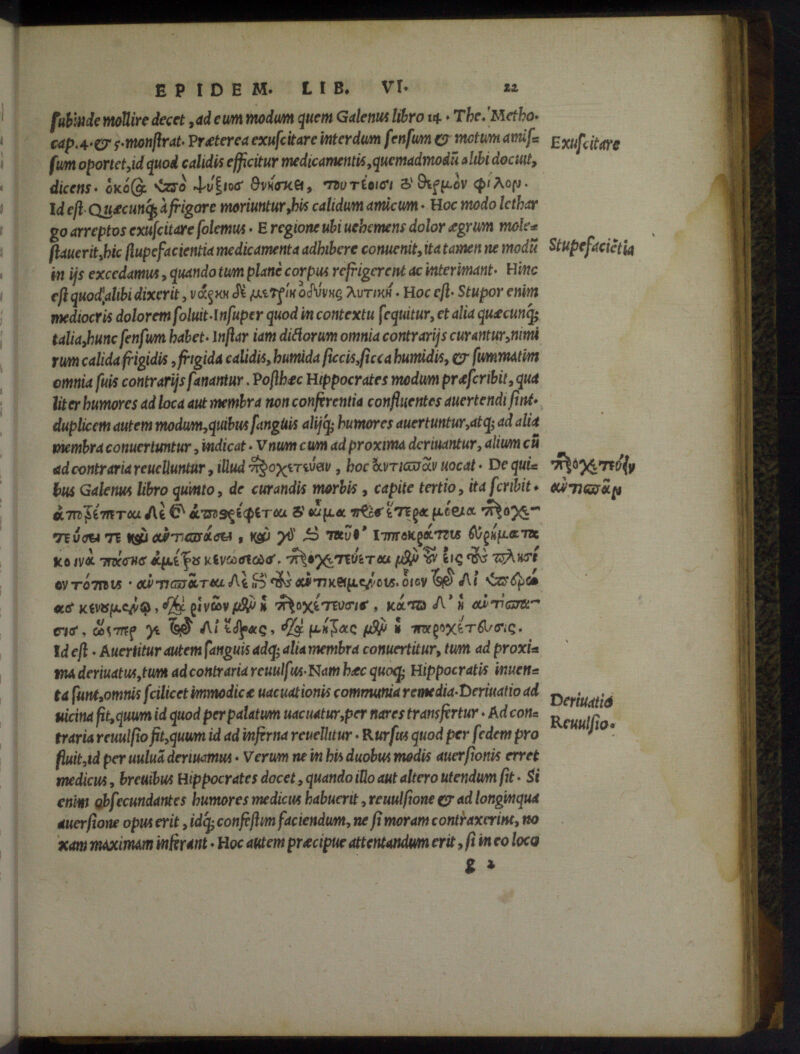 EPIDEM. LIB. VI. 22
subinde mollire decet, ad eum modum quem Galenus libro 14. The. Metho.
cap. 4. & 5. monstrat. Præterea exuscitare interdum sensum & motum amis=
sum oportet, id quod calidis efficitur medicamentis, quemadmodū alibi docuit,
dicens. ὁκόσα ὑπὸ ψύξιος θνήσκει, τουτέοισι τὸ θερμὸν φίλον.
Id est. Quæcunq; à frigore moriuntur, his calidum amicum. Hoc modo lethar
go arreptos exuscitare solemus. E regione ubi uehemens dolor ægrum mole=
stauerit, hic stupefacientia medicamenta adhibere conuenit, ita tamen ne modū
in ijs excedamus, quando tum planè corpus refrigerent ac interimant. Hinc
est quod alibi dixerit, νάρκη δὲ μετρίη ὀδύνης λυτική. Hoc est. Stupor enim
mediocris dolorem soluit. Insuper quod in contextu sequitur, et alia quæcunq;
talia, hunc sensum habet. Instar iam dictorum omnia contrarijs curantur, nimi
rum calida frigidis, frigida calidis, humida siccis, sicca humidis, & summatim
omnia suis contrarijs sanantur. Posthæc Hippocrates modum præscribit, qua
liter humores ad loca aut membra non conferentia confluentes auertendi sint.
duplicem autem modum, quibus sanguis alijq; humores auertuntur, atq; ad alia
membra conuertuntur, indicat. Vnum cum ad proxima deriuantur, alium cū
ad contraria reuelluntur, illud παροχετεύειν, hoc ἀντισπᾶν uocat. De qui=
bus Galenus libro quinto, de curandis morbis, capite tertio, ita scribit.
ἀποτρέπεται δὲ καὶ ἀποστρέφεται τὸ αἷμα πρὸς ἕτερα μόρια παροχε-
τεύσει τε καὶ ἀντισπάσει, καὶ γὰρ καὶ ταῦθ' Ἱπποκράτους εὑρήματα
κοινὰ πάσης ἀμέτρου κενώσεως. παροχετεύεται μὲν οὖν εἰς τοὺς πλησί
ον τόποις. ἀντισπᾶται δὲ ἐπὶ τοὺς ἀντικειμένοις. οἷον τοῦ δι' ὑπερώ
ας κενουμένου, διὰ ῥινῶν μὲν ἡ παροχέτευσις, κάτω δ' ἡ ἀντίσπα-
σις, ὥσπερ γε τοῦ δι' ἕδρας, διὰ μήτρας μὲν ἡ παροχέτευσις.
Id est. Auertitur autem sanguis adq; alia membra conuertitur, tum ad proxi=
ma deriuatus, tum ad contraria reuulsus. Nam hæc quoq; Hippocratis inuen=
ta sunt, omnis scilicet immodicæ uacuationis communia remedia. Deriuatio ad
uicina fit, quum id quod per palatum uacuatur, per nares transfertur. Ad con=
traria reuulsio fit, quum id ad inferna reuellitur. Rursus quod per sedem pro
fluit, id per uuluā deriuamus. Verum ne in his duobus modis auersionis erret
medicus, breuibus Hippocrates docet, quando illo aut altero utendum sit. Si
enim obsecundantes humores medicus habuerit, reuulsione & ad longinqua
auersione opus erit, idq; confestim faciendum, ne si moram contraxerint, no
xam maximam inferant. Hoc autem præcipue attentandum erit, si in eo loco
g 2
Exuscitare
Stupefaciētia
παροχετεύειν
ἀντισπᾶν
Deriuatio
Reuulsio.